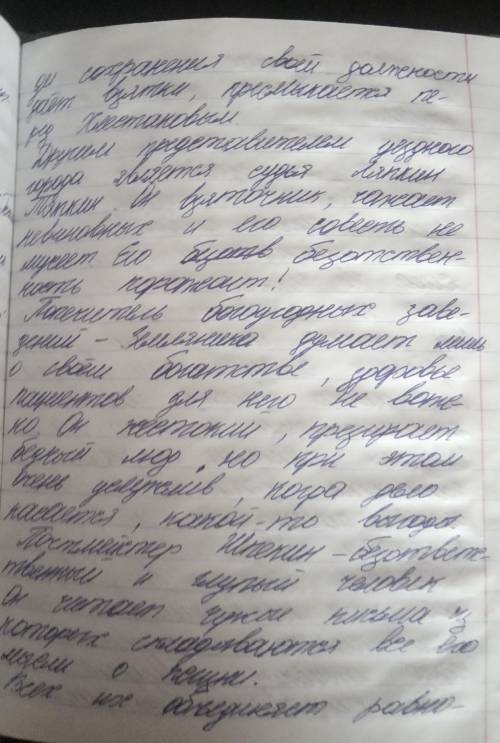 ди сохранения своей должности
даёт взятки, пресмыкается пе-
ред Хлестаковым
Другим представителем уездного
города является судья Ляпкин
Тяпкин. Он взяточник, сажает
невиновных и его совесть не
мучает. Его безответствен-
ность поражает!
Попечитель богоугодных заве-
дений - Земляника думает лишь
о своём богатстве, здоровье
пациентов для него не важ-
но. Он жестокий, презирает
бедный люд, но при этом
очень услужлив, когда дело
касается, какой-то выгоды.
Почтмейстер Шпекин - безответс-
твенный и глупый человек
Он читает чужие письма из
которых складываются все его
мысли о жизни.
Всех их объединяет равно-